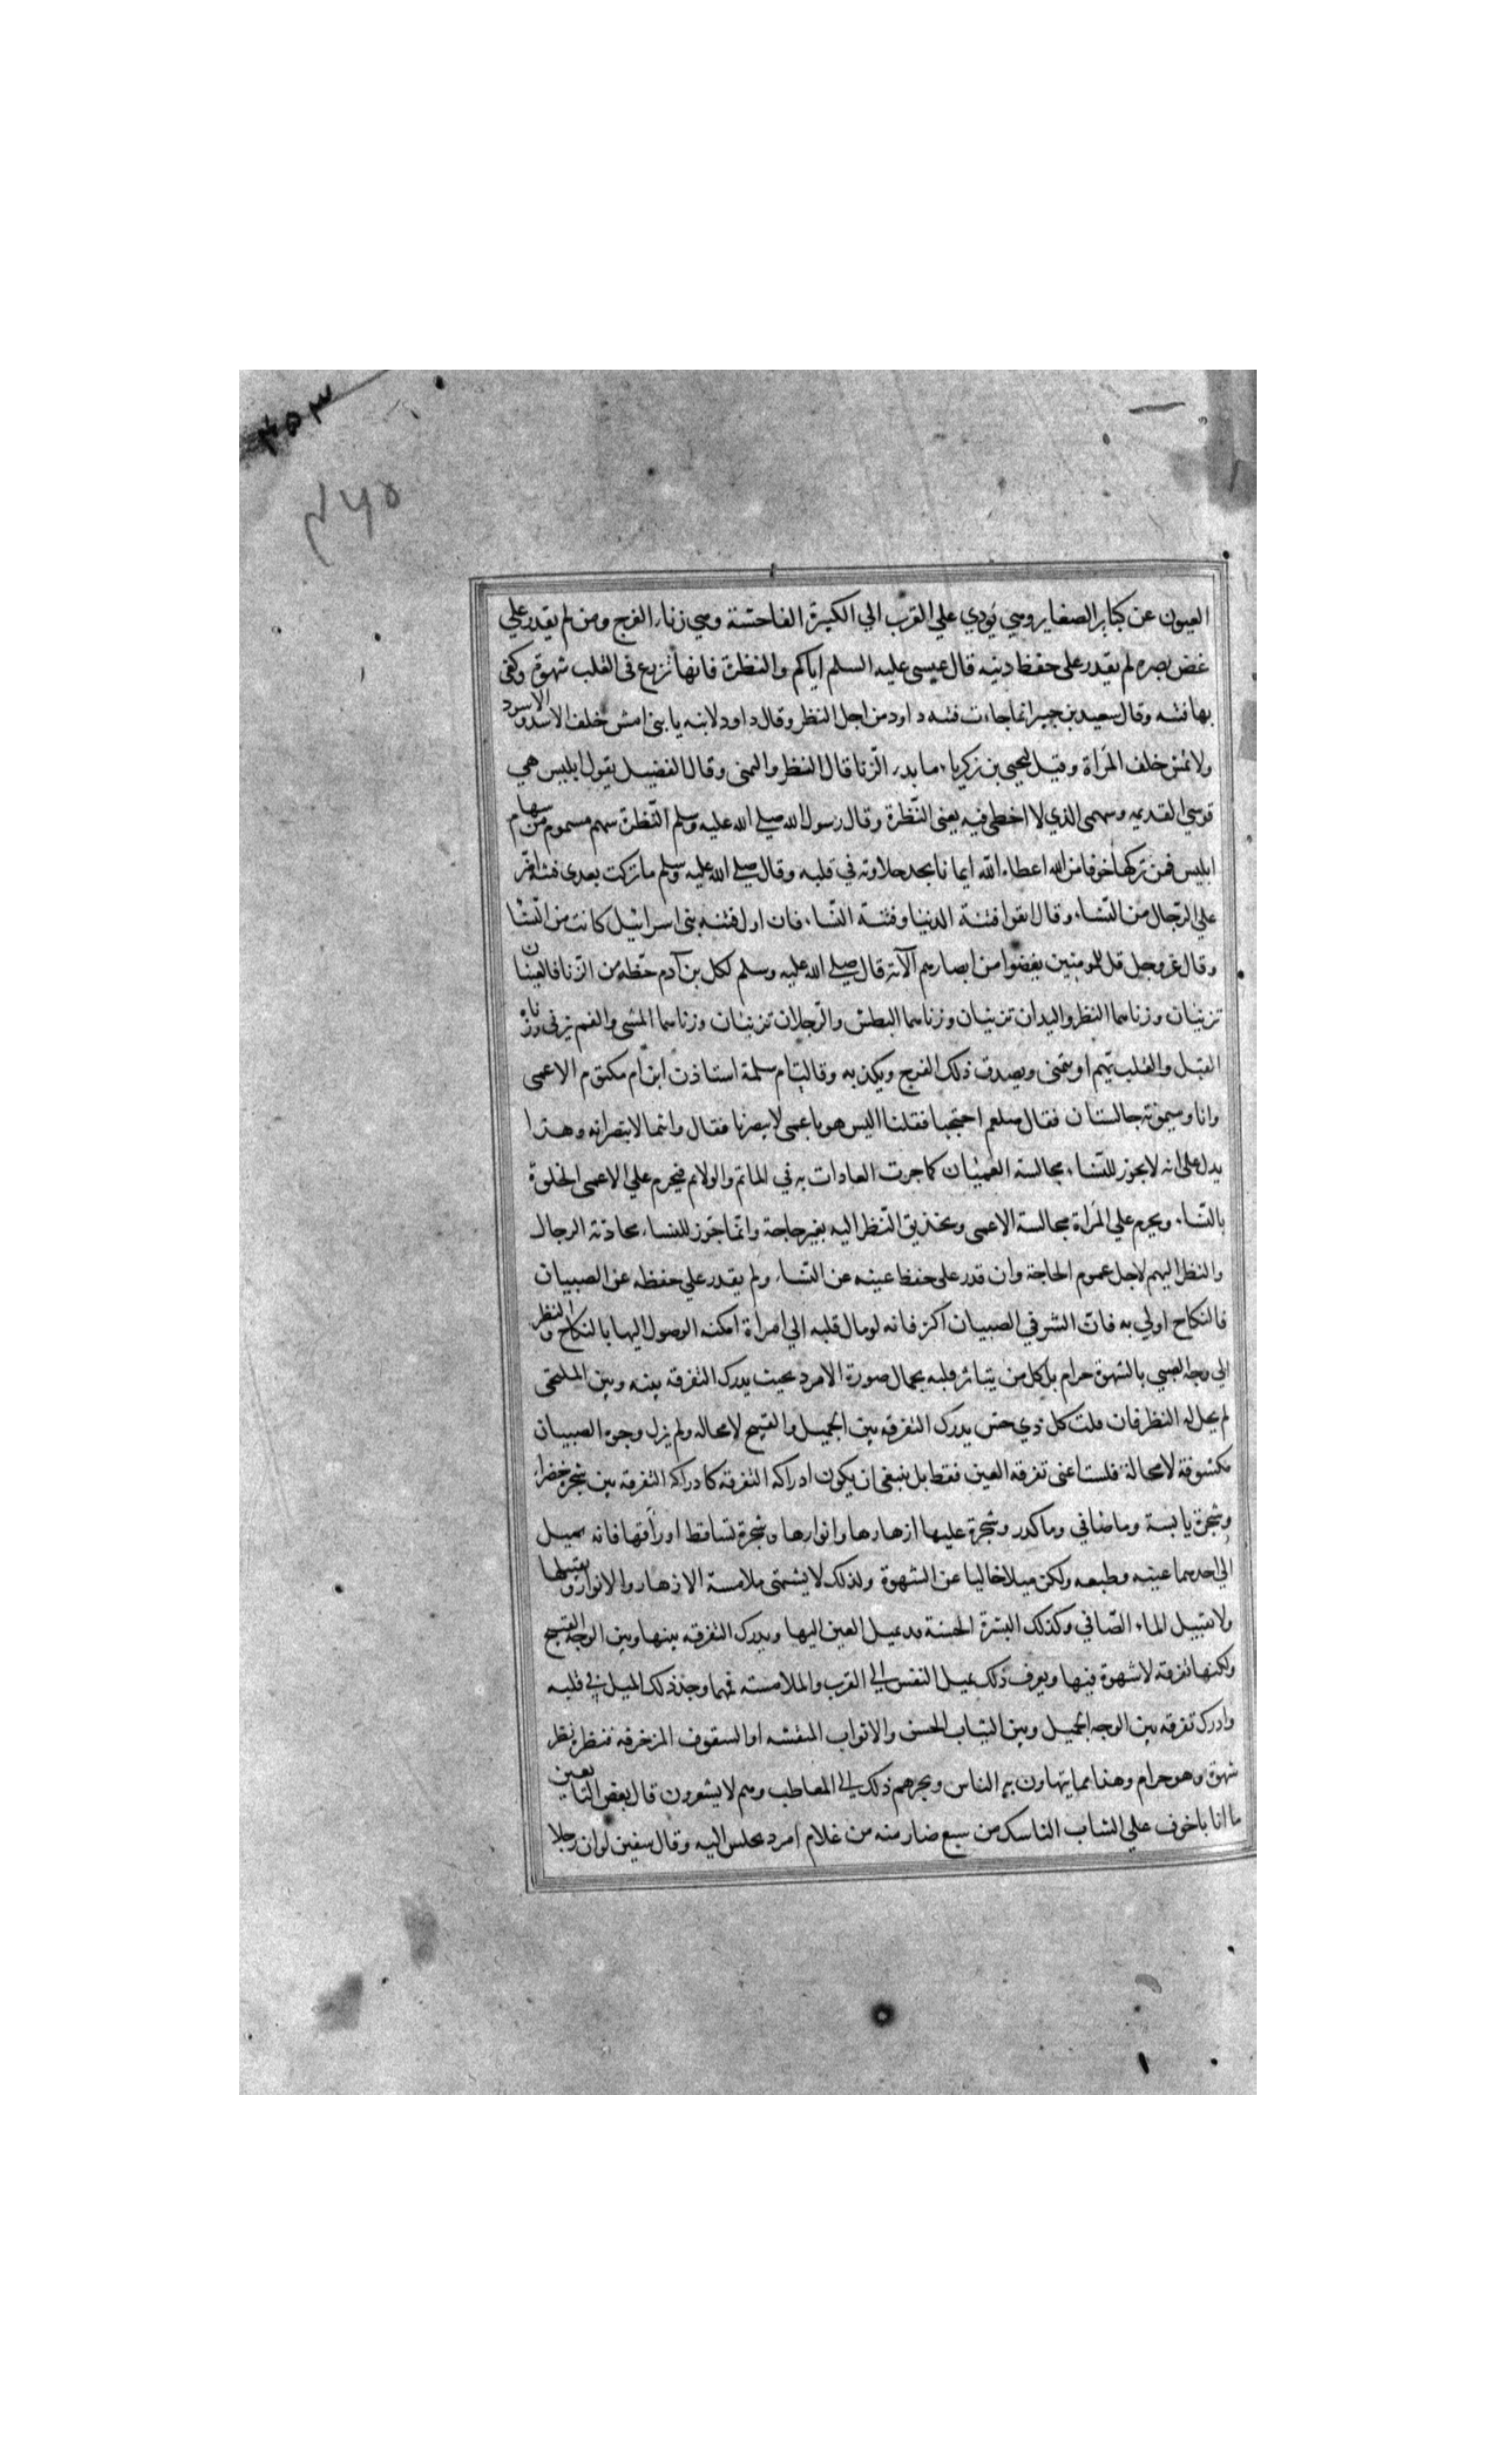 ۴۵۳
۴۵۹
العيون عن كباير الصغاير وهي يؤدي علي القرب الي الكبيرة الفاحشة وهي زناء الفرج ومن لم يقدر علي
غض بصره لم يقدر على حفظ دينه قال عيسى عليه السلم اياكم والنظرة فانها تزرع فى القلب شهوة وكفى
بها فتنه وقال سعيد بن جبير انما جاءت فتنه داود من اجل النظر وقال داود لابنه يا بنى امش خلف الاسد والاسود
ولا تمش خلف المراة وقيل ليحيى بن زكرياء ما بدء الزنا قال النظر والتمنى وقال الفضيل يقول ابليس هي
قوسي القديمه وسهمى الذي لا اخطى فيه يعنى النظرة وقال رسول الله صلي الله عليه وسلم النظرة سهم مسموم من سهام
ابليس فمن تركها خوفا من الله اعطاء الله ايمانا يجد حلاوته في قلبه وقال صلي الله عليه وسلم ما تركت بعدى فتنه اضر
علي الرجال من النساء وقال اتقوا فتنة الدنيا وفتنة النساء فان اول فتنه بنى اسرائيل كانت من النسا
وقال عز وجل قل للمومنين يغضوا من ابصارهم الآية قال صلي الله عليه وسلم لكل بن آدم حظه من الزنا فالعينان
تزنيان وزناهما النظر واليدان تزنيان وزناهما البطش والرجلان تزنيان وزناهما المشى والفم يزنى وزناه
القبل والقلب يهم او يتمنى ويصدق ذلك الفرج ويكذبه وقالت ام سلمة استاذن ابن ام مكتوم الاعمى
وانا وميمونة جالستان فقال صلعم احتجبا فقلنا اليس هو باعمى لا يبصرنا فقال وانتما لا تبصرانه وهذا
يدل على انه لا يجوز للنساء مجالسة العميان كما جرت العادات به في الماتم والولائم فيحرم علي الاعمى الخلوة
بالنساء ويحرم علي المراة مجالسة الاعمى وتحذيق النظر اليه بغير حاجة وانما جوز للنساء محادثة الرجال
والنظر اليهم لاجل عموم الحاجة وان قدر على حفظ عينه عن النساء ولم يقدر علي حفظه عن الصبيان
فالنكاح اولي به فان الشر في الصبيان اكثر فانه لو مال قلبه الي امراة امكنه الوصول اليها بالنكاح والنظر
الي وجه الصبي بالشهوة حرام بل كل من يتاثر قلبه بجمال صورة الامرد بحيث يدرك التفرقه بينه وبين الملتحى
لم يحل له النظر فان قلت كل ذي حس يدرك التفرقه بين الجميل والقبيح لا محاله ولم يزل وجوه الصبيان
مكشوفة لا محالة فلست اعنى تفرقه العين فقط بل ينبغى ان يكون ادراكه التفرقة كادراكه التفرقه بين شجرة خضراء
وشجرة يابسة وماء صافي وماء كدر وشجرة عليها ازهارها وانوارها وشجرة تساقط اوراقها فانه يميل
الي احدهما عينه وطبعه ولكن ميلا خاليا عن الشهوة ولذلك لا يشتهى ملامسة الازهار والانوار وتقبيلها
ولا تقبيل الماء الصافي وكذلك البشرة الحسنة قد يميل العين اليها ويدرك التفرقه بينها وبين الوجه القبيح
ولكنها تفرقه لا شهوة فيها ويعرف ذلك بميل النفس الي القرب والملامسه فمهما وجد ذلك الميل في قلبه
وادرك تفرقه بين الوجه الجميل وبين الثياب الحسن والاثواب المنقشه او السقوف المزخرفه فنظره نظر
شهوة وهو حرام وهذا مما يتهاون به الناس ويجرهم ذلك الي المعاطب وهم لا يشعرون قال بعض التابعين
ما انا باخوف علي الشاب الناسك من سبع ضار منه من غلام امرد يجلس اليه وقال سفين لو ان رجلا